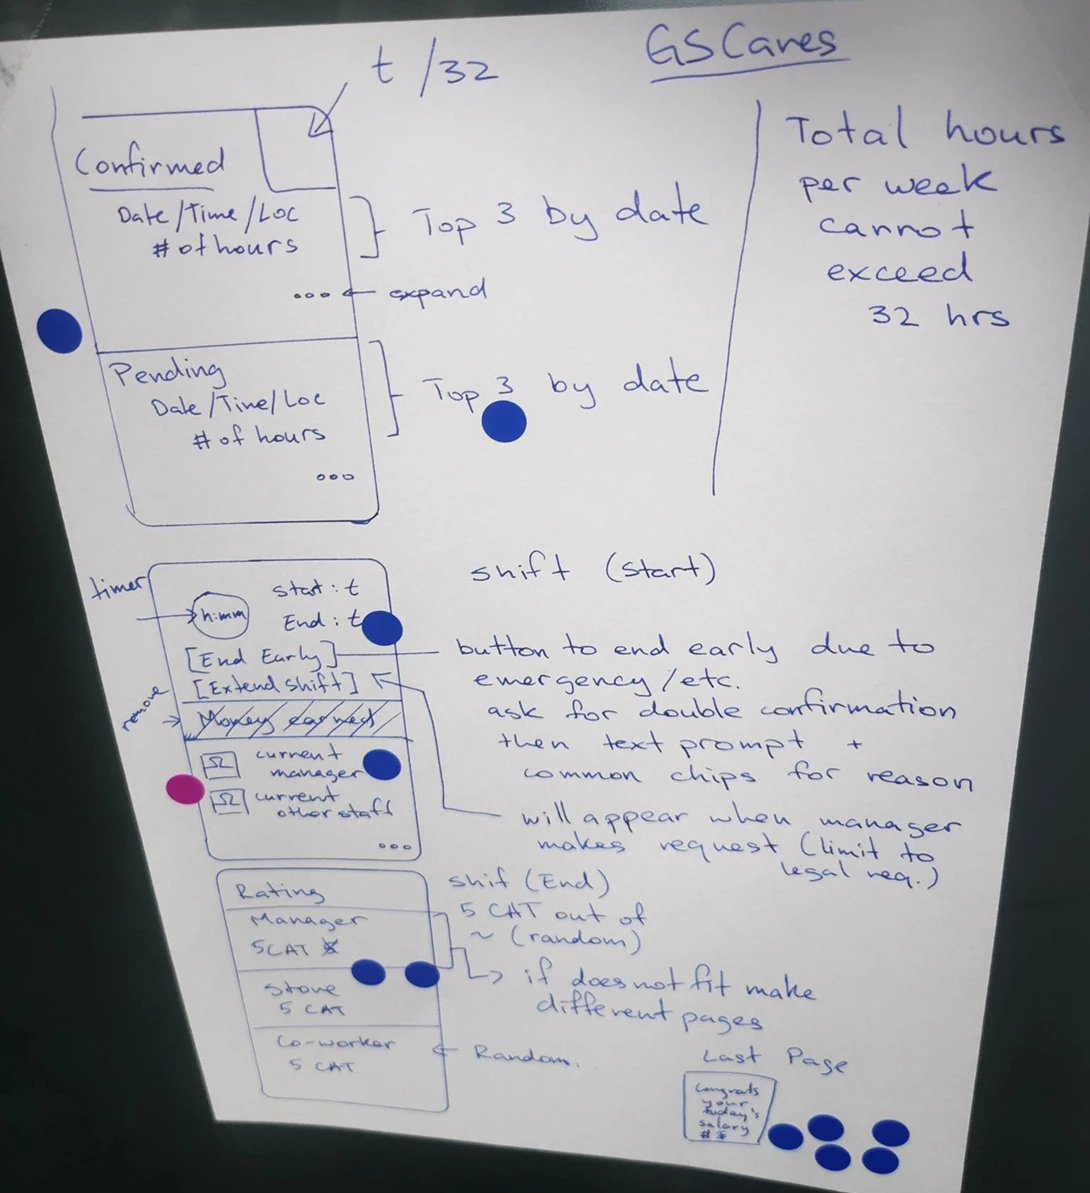 GSCares
t /32
Confirmed
Date/Time/Loc
# of hours
Top 3 by date
ooo ← expand
Pending
Date/Time/Loc
# of hours
Top 3 by date
ooo
Total hours
per week
cannot
exceed
32 hrs
shift (start)
timer
h:mm
start : t
End : t
[End Early]
[Extend shift]
remove
Money earned
current
manager
current
other staff
ooo
button to end early due to
emergency/etc.
ask for double confirmation
then text prompt +
common chips for reason
will appear when manager
makes request (limit to
legal req.)
shif (End)
5 CAT out of
~ (random)
if does not fit make
different pages
Rating
Manager
5CAT
Store
5 CAT
Co-worker
5 CAT
← Random.
Last Page
Congrats
your
today's
salary
#